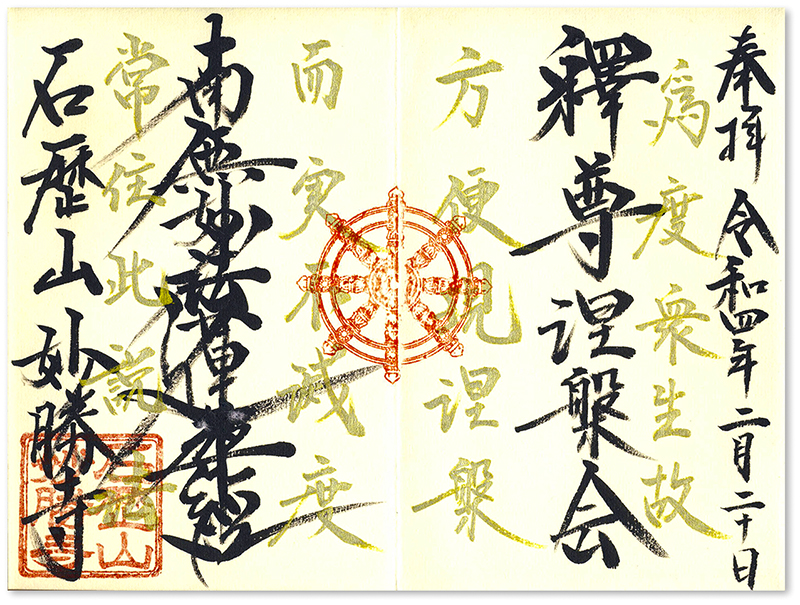 奉拝 令和四年 二月二十日
爲度衆生故
釋尊涅槃会
方便現涅槃
而実不滅度
南無妙法蓮華經
常住此説法
石歴山 妙勝寺
石歴山
妙勝寺